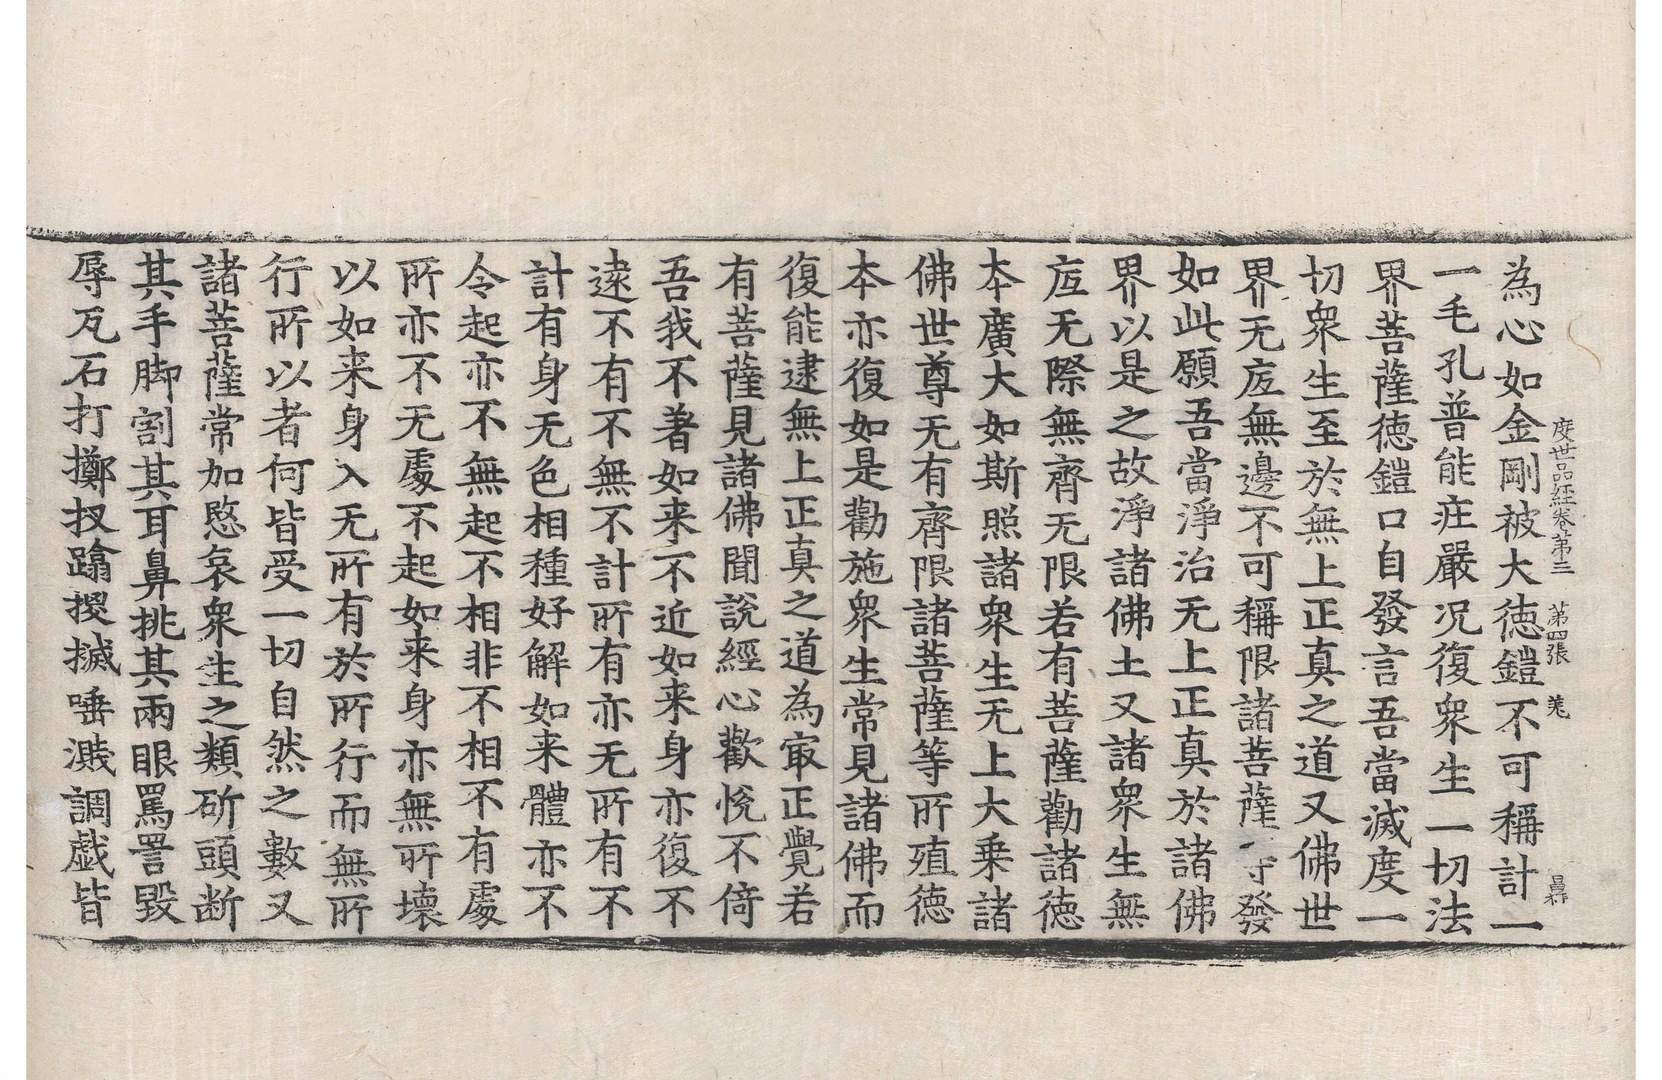 度世品經卷第三 第四張 羌
為心如金剛被大德鎧不可稱計一
一毛孔普能庄嚴况復衆生一切法
界菩薩德鎧口自發言吾當滅度一
切衆生至於無上正真之道又佛世
界无㡳無邊不可稱限諸菩薩等發
如此願吾當淨治无上正真於諸佛
界以是之故淨諸佛土又諸衆生無
㡳无際無齊无限若有菩薩勸諸德
本廣大如斯照諸衆生无上大乗諸
佛世尊无有齊限諸菩薩等所殖德
本亦復如是勸施衆生常見諸佛而
復能逮無上正真之道為㝡正覺若
有菩薩見諸佛聞說經心歡悅不倚
吾我不著如来不近如来身亦復不
遠不有不無不計所有亦无所有不
計有身无色相種好解如来體亦不
令起亦不無起不相非不相不有處
所亦不无處不起如来身亦無所壞
以如来身入无所有於所行而無所
行所以者何皆受一切自然之數又
諸菩薩常加愍哀衆生之類斫頭断
其手脚割其耳鼻挑其兩眼罵詈毀
辱瓦石打擲扠蹹㨷搣唾濺調戱皆